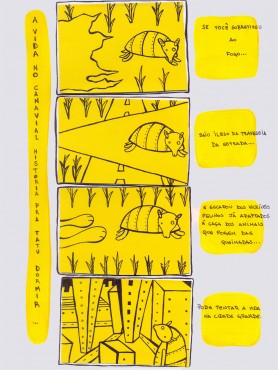 A VIDA NO CANAVIAL HISTÓRIA PRA TATU DORMIR ...
SE VOCÊ SOBREVIVEU
AO
FOGO...
SAIU ILESO DA TRAVESSIA
DA ESTRADA...
E ESCAPOU DOS INCRÍVEIS
FELINOS JÁ ADAPTADOS
À CAÇA DOS ANIMAIS
QUE FOGEM DAS
QUEIMADAS...
PODE TENTAR A VIDA
NA CIDADE GRANDE.